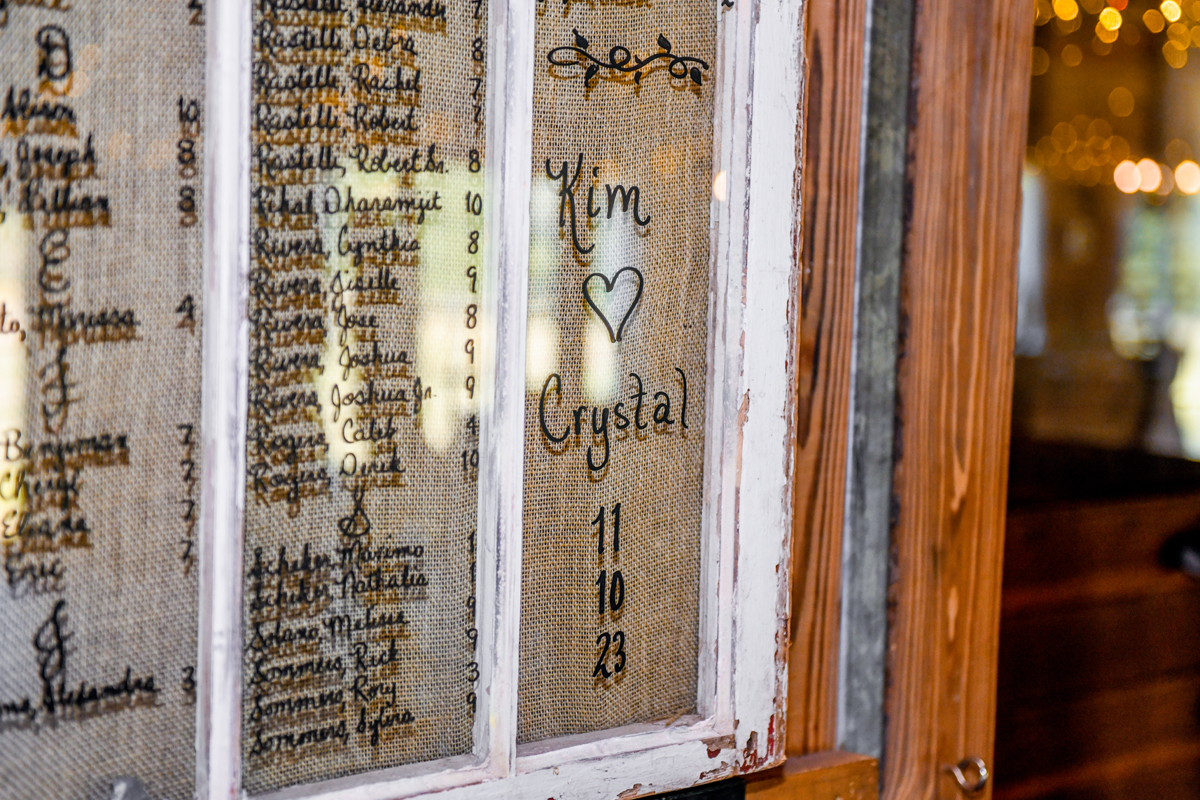 D
Alison 10
Joseph 8
Lillian 8
E
4
F
Benyman 7
Cheryl 7
7
Eric 7
J
Alexandra 3
Rastelli, Alexander 7
Rastelli, Debra 8
Rastelli, Rachel 7
Rastelli, Robert 7
Rastelli, Robert Sr. 8
Rihal Dharamjit 10
Rivera, Cynthia 8
Rivera, Jiselle 9
Rivera, Jose 8
Rivera, Joshua 9
Rivera, Joshua Jr. 9
Rogers, Caleb 4
Rogers, Derek 10
S
Scheker, Maximo 1
Scheker, Nathalia 1
Solano, Melisse 9
Sommers, Rick 9
Sommers, Rory 3
Sommers, Sylvia 9
Kim
Crystal
11
10
23